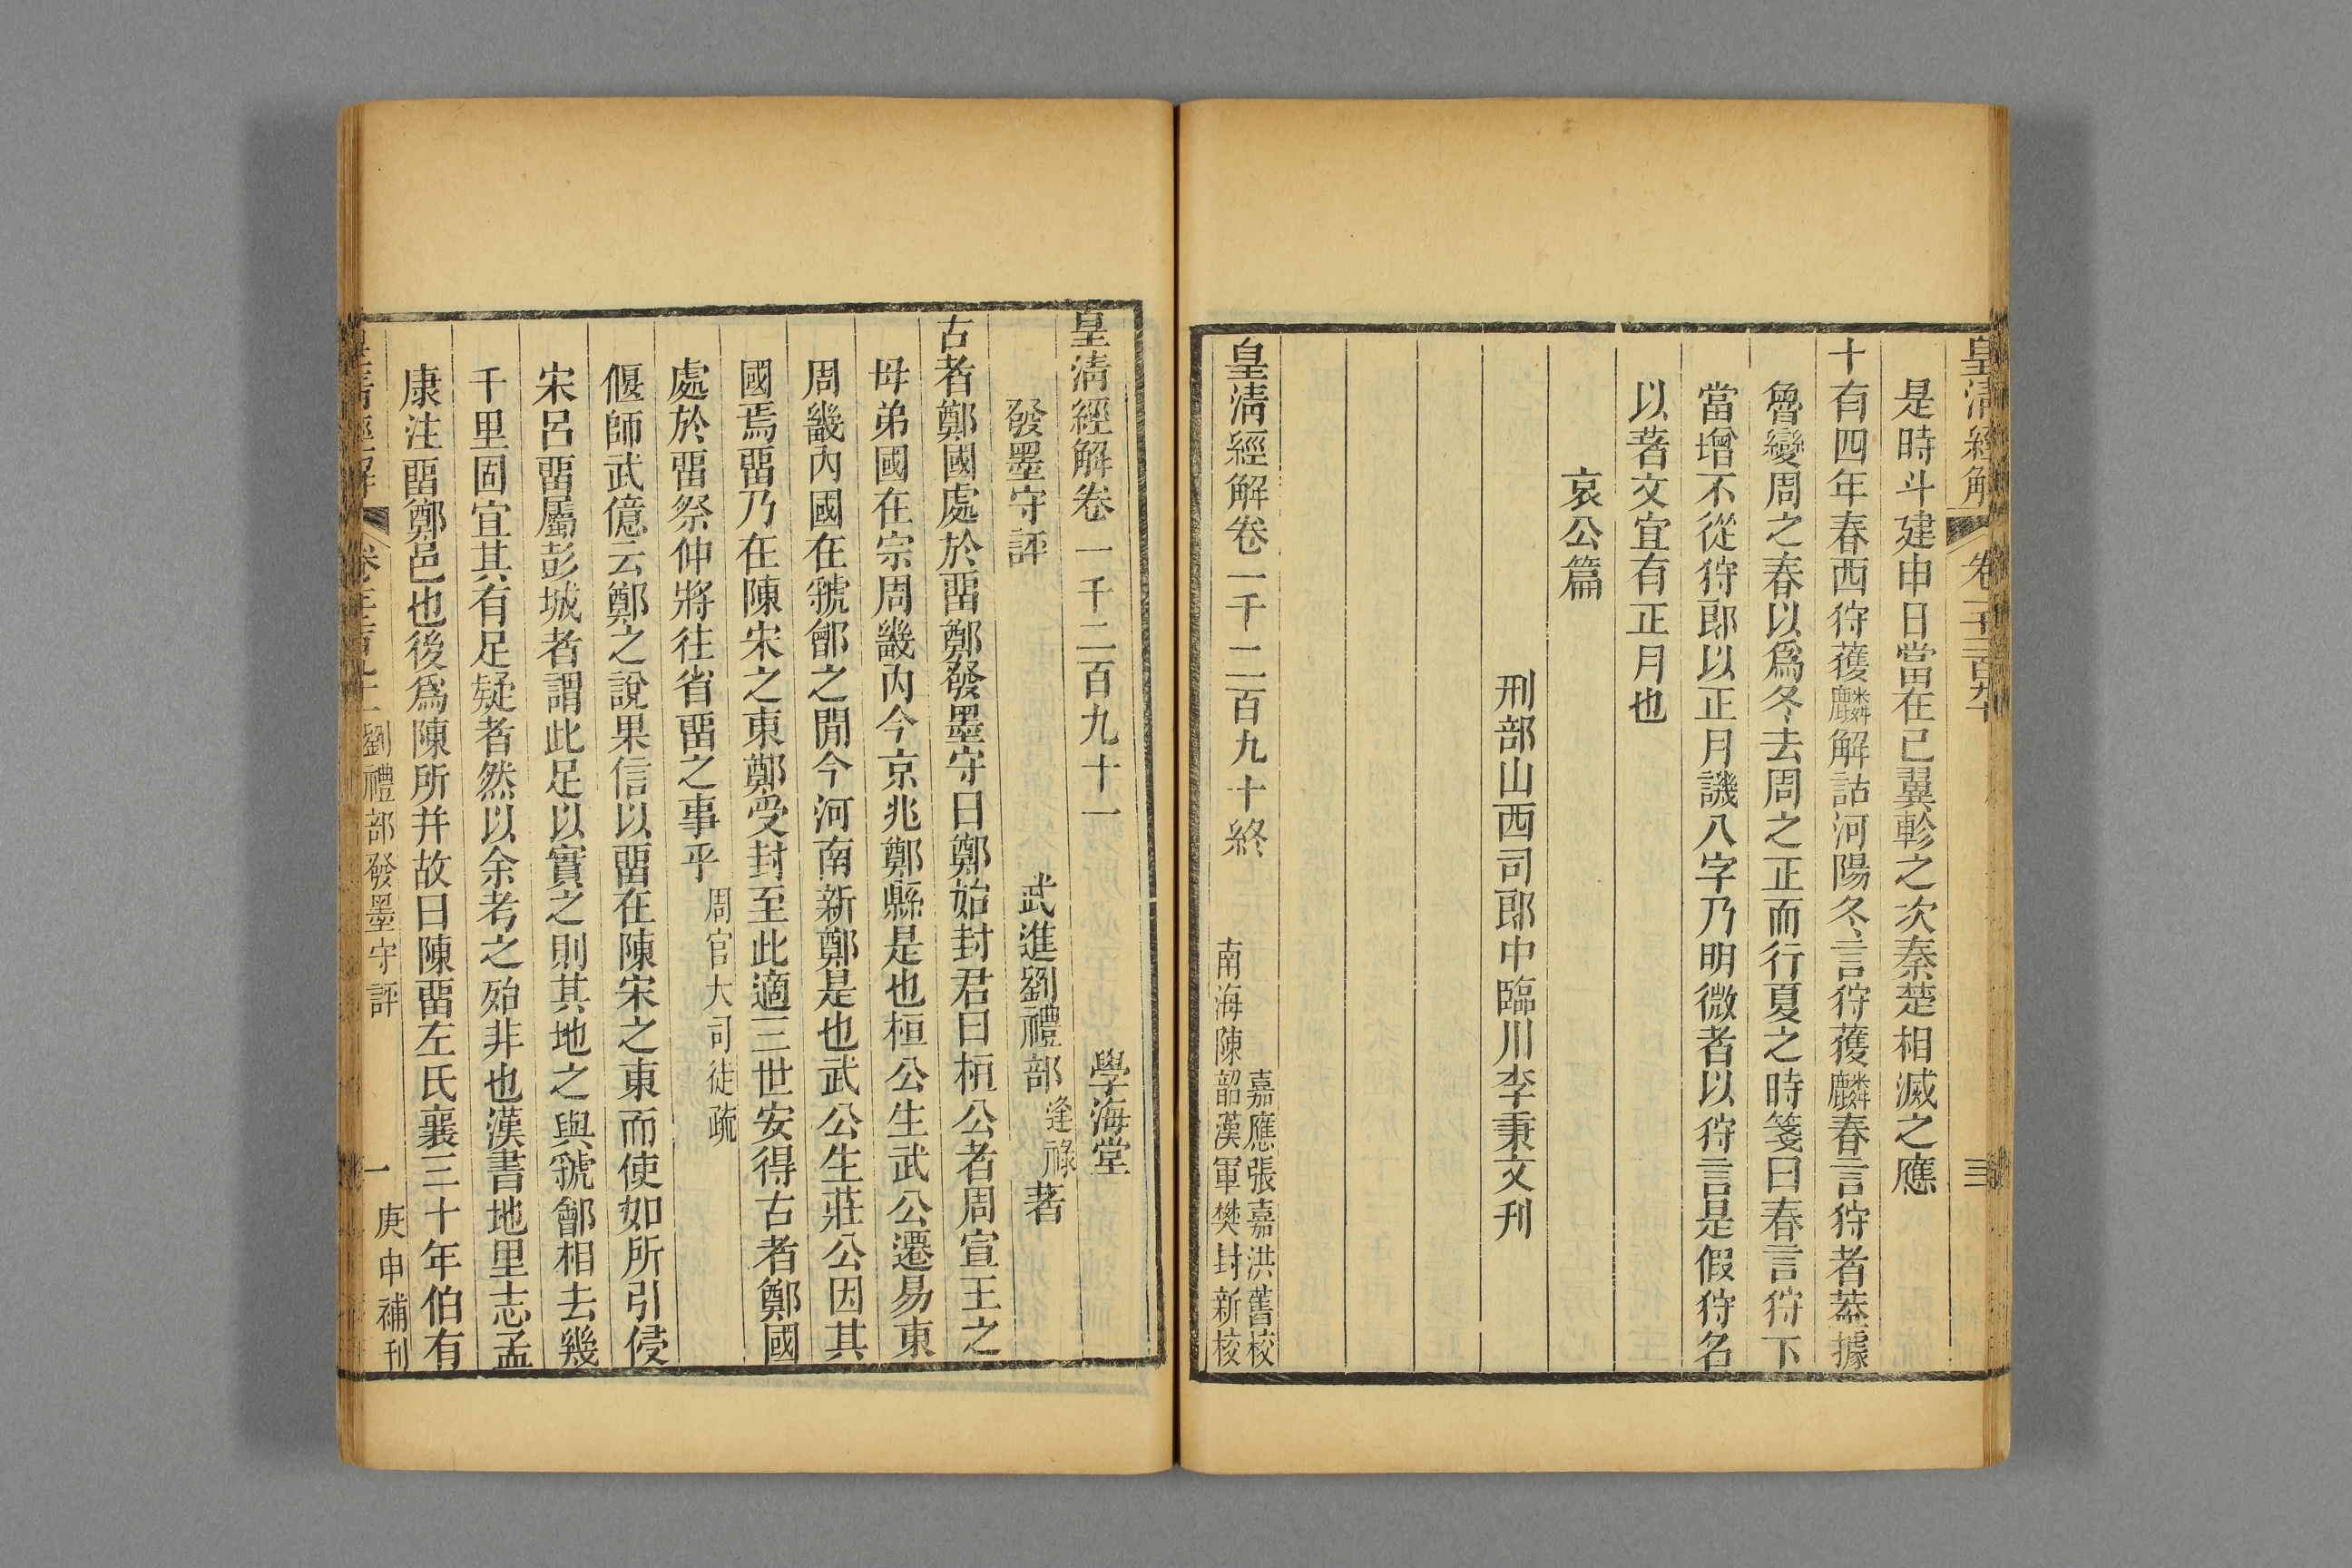 皇清經解 卷一千二百九十 三
是時斗建申日當在巳翼軫之次秦楚相滅之應
十有四年春西狩獲麟解詁河陽冬言狩獲麟春言狩者葢據
魯變周之春以爲冬去周之正而行夏之時箋曰春言狩下
當增不從狩郎以正月譏八字乃明微者以狩言是假狩名
以著文宜有正月也
哀公篇
刑部山西司郎中臨川李秉文刊
皇清經解卷一千二百九十終
嘉應張嘉洪舊校
南海陳韶漢軍樊封新校
皇清經解卷一千二百九十一
學海堂
發墨守評
武進劉禮部逢祿著
古者鄭國處於畱鄭發墨守曰鄭始封君曰桓公者周宣王之
母弟國在宗周畿內今京兆鄭縣是也桓公生武公遷易東
周畿內國在虢鄶之閒今河南新鄭是也武公生莊公因其
國焉畱乃在陳宋之東鄭受封至此適三世安得古者鄭國
處於畱祭仲將往省畱之事乎周官大司徒疏
偃師武億云鄭之說果信以畱在陳宋之東而使如所引侵
宋呂畱屬彭城者謂此足以實之則其地之與虢鄶相去幾
千里固宜其有足疑者然以余考之殆非也漢書地里志孟
康注畱鄭邑也後爲陳所并故曰陳畱左氏襄三十年伯有
皇清經解 卷一千二百九十一 劉禮部發墨守評 一 庚申補刊